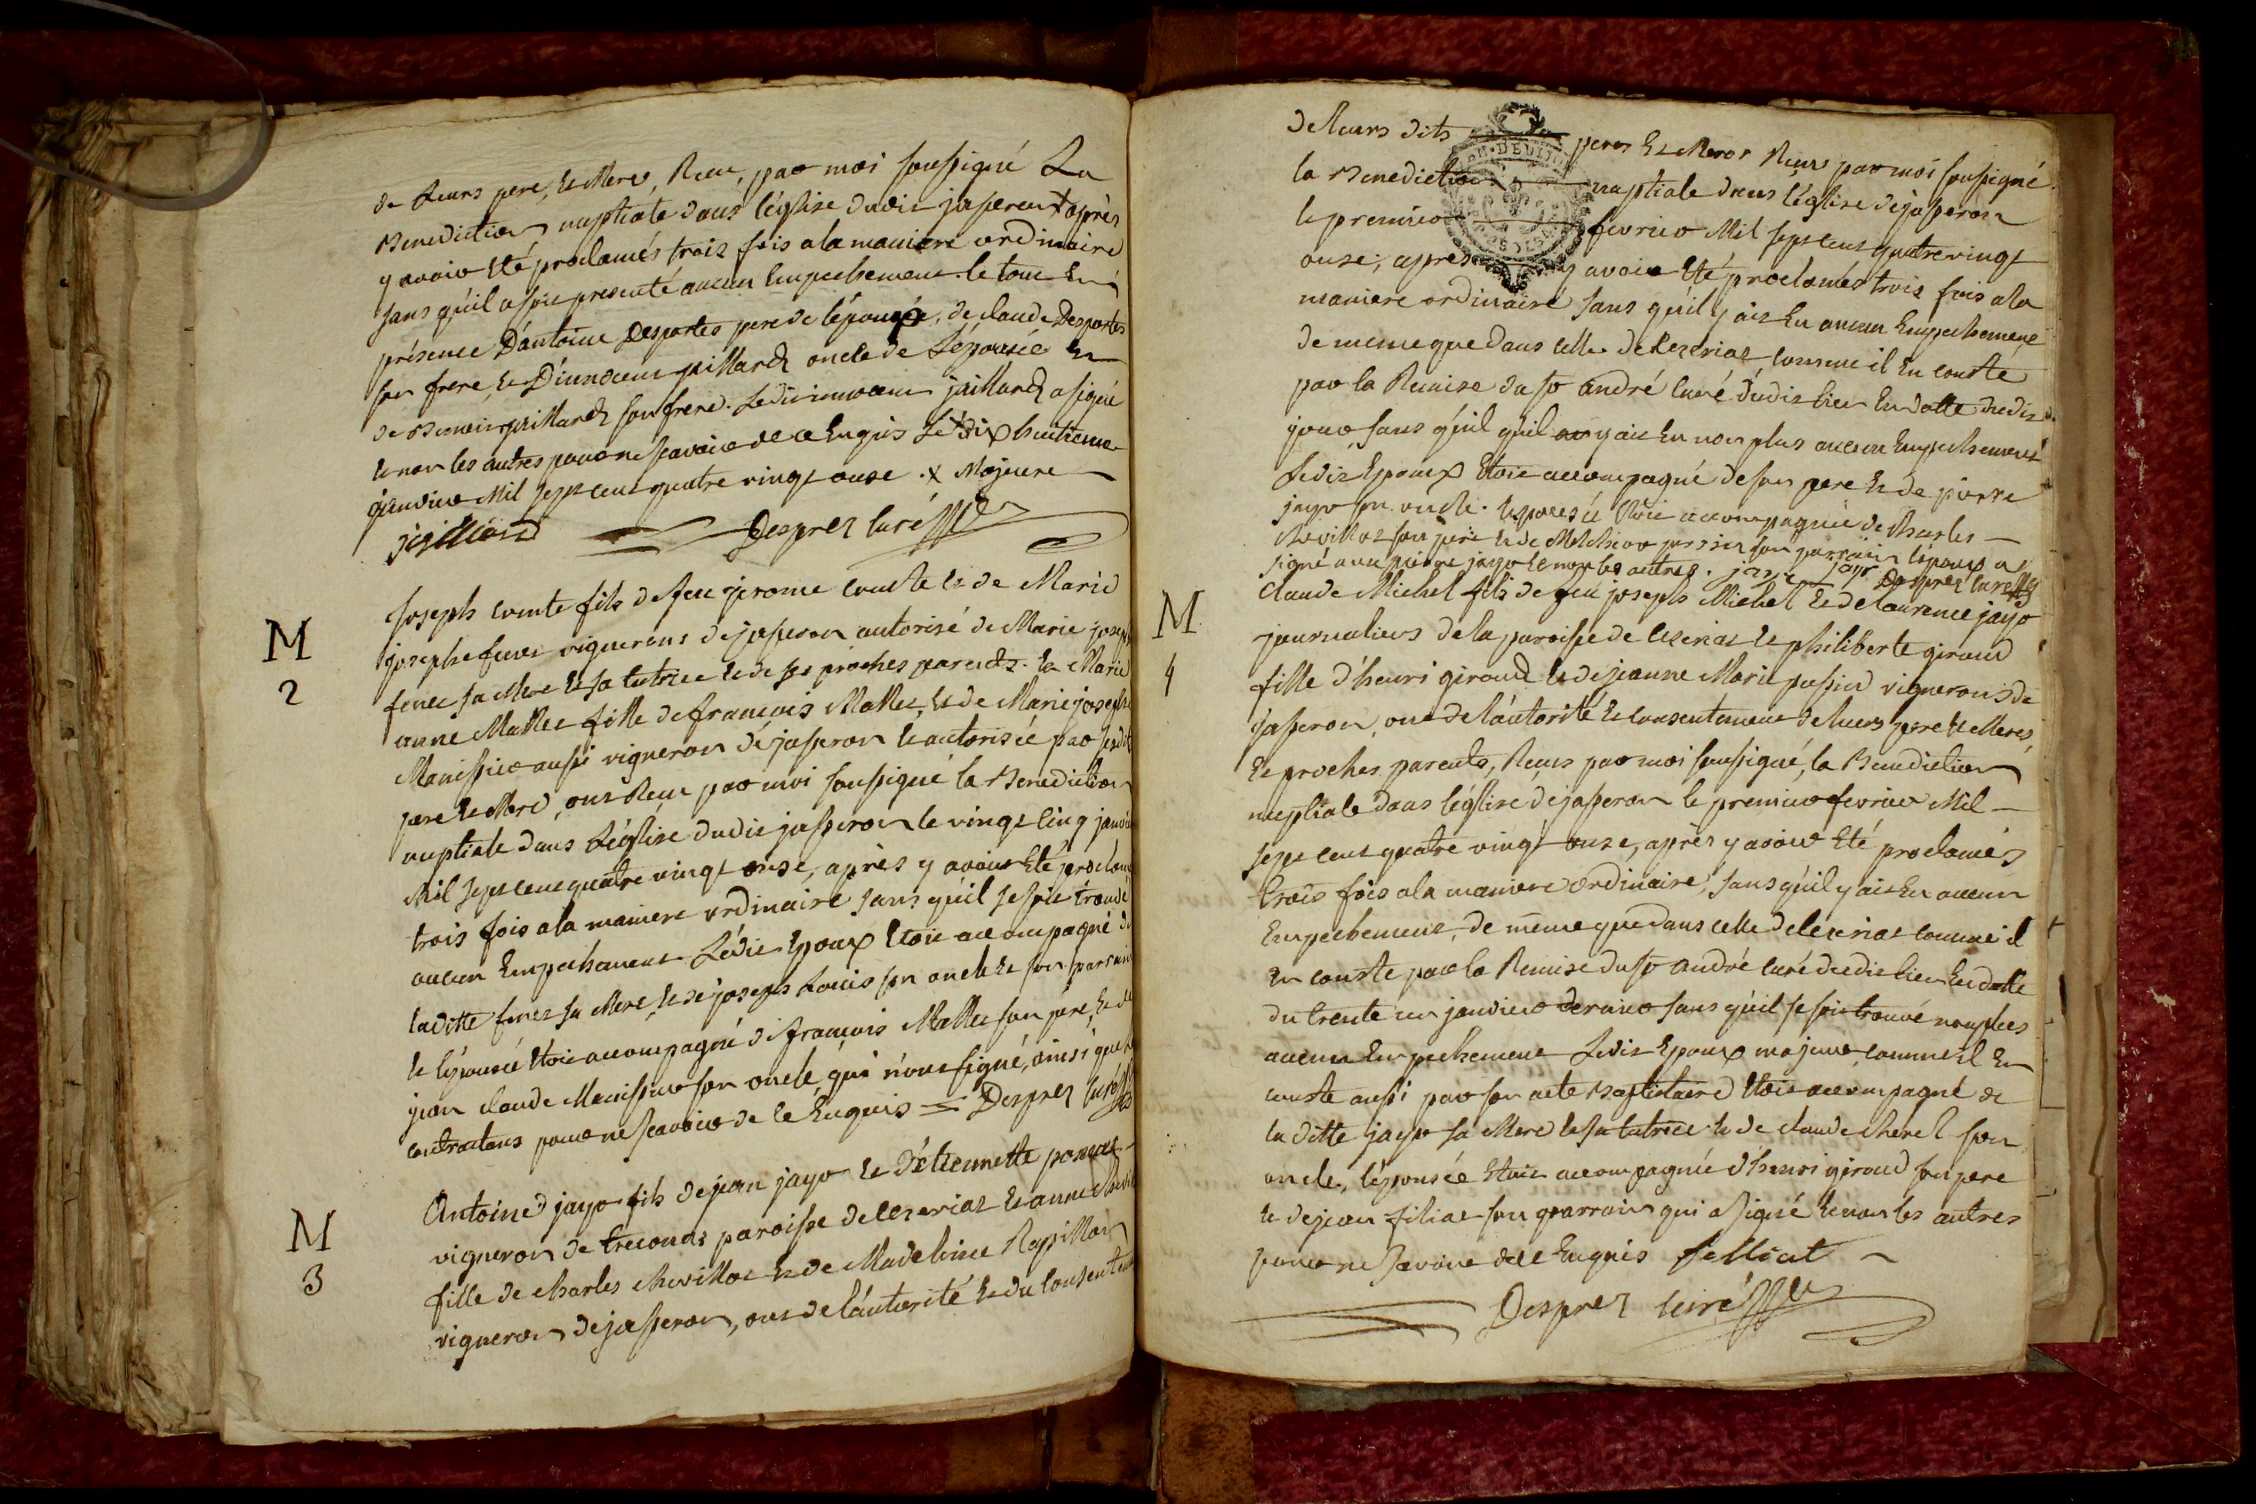 de Leurs pere, et Mere, Recu, par moi soussigné La
Benediction nuptiale dans l'église dudit jasseron + après
y avoir été proclamés trois fois a la maniere ordinaire
sans qu'il se soit presenté aucun Empechement. le tout En
présence D'antoine Desportes pere de l'épouse, de claude Desportes
son frere, et D'innocent paillard oncle de L'épousée et
de Benoit paillard son frere. Ledit innocent jaillard a signé
et non les autres pour ne scavoir de ce Enquis Le dix huitieme
janvier Mil sept cent quatre vingt onse . x Majeure
Desprez curé
M
2
Joseph conte fils de feu jerome conte et de Marie
josephe fenet vignerons de jasseron autorisé de Marie joseph
fenet sa Mere et sa tutrice et de ses proches parents. et Marie
anne Mallet fille de françois Mallet, et de Marie joseph
Manissier aussi vigneron de jasseron et autorisée par sesdits
pere et Mere, ont Recu par moi soussigné la Benediction
nuptiale dans L'église dudit jasseron le vingt cinq janvier
Mil sept cent quatre vingt onse, après y avoir été proclamés
trois fois a la maniere ordinaire sans qu'il se soit trouvé
aucun Empechement Ledit Epoux Etoit accompagné de
laditte fenet sa Mere, et de joseph Louis son oncle et son parrain
et l'épousée étoit accompagné de françois Mallet son père, et de
jean claude Manissier son oncle qui n'ont signé, ainsi que les
contractans pour ne scavoir de ce Enquis = Desprez curé
M
3
Antoine jayr fils de jean jayr et d'étiennette poncet
vigneron de treconas paroisse de Ceseriat et anne chevillat
fille de charles chevillot et de Madeleine Rapillon
vigneron de jasseron, ont de l'autorité et du consentement
de leurs dits peres et Meres Recu par moi soussigné
la Benediction nuptiale dans l'église de jasseron
le premier fevrier Mil sept cent quatre vingt
onse, après y avoir été proclamés trois fois a la
maniere ordinaire sans qu'il y ait Eu aucun Empechement
de meme que dans celle de Ceseriat comme il en conste
par la Remise du sr andré curé dudit lieu En datte dudit
jour sans qu'il y ait Eu non plus aucun Empechement
Ledit Epoux étoit accompagné de son pere et de pierre
jayr son oncle. L'épousée étoit accompagnée de Charles
chevillot son pere et de Melchior perrin son parrain l'époux a
signé avec pierre jayr et non les autres. jayr jayr Desprez curé
M
4
Claude Michel fils de feu joseph Michel et de Laurence jayr
journaliers de la paroisse de Ceseriat et philiberte giroud
fille d'henri giroud et de jeanne Marie passin vignerons de
jasseron, ont de l'autorité et consentement de leurs pere et Meres,
et proches parents, Recus par moi soussigné, la Benediction
nuptiale dans l'église de jasseron le premier fevrier Mil
sept cent quatre vingt onse, après y avoir été proclamés
trois fois a la maniere ordinaire, sans qu'il y ait Eu aucun
Empechement, de même que dans celle de Ceseriat comme il
en conste par la Remise du sr andré curé dudit lieu En datte
du trente un janvier dernier sans qu'il se soit trouvé non plus
aucun Empechement Ledit Epoux majeur comme il En
conste aussi par son acte Baptistaire étoit accompagné de
la ditte jayr sa Mere et sa tutrice et de claude cherel son
oncle, l'épousée étoit accompagnée d'henri giroud son pere
et de jean filiat son parrain qui a signé et non les autres
pour ne scavoir de ce Enquis felliat
Desprez curé